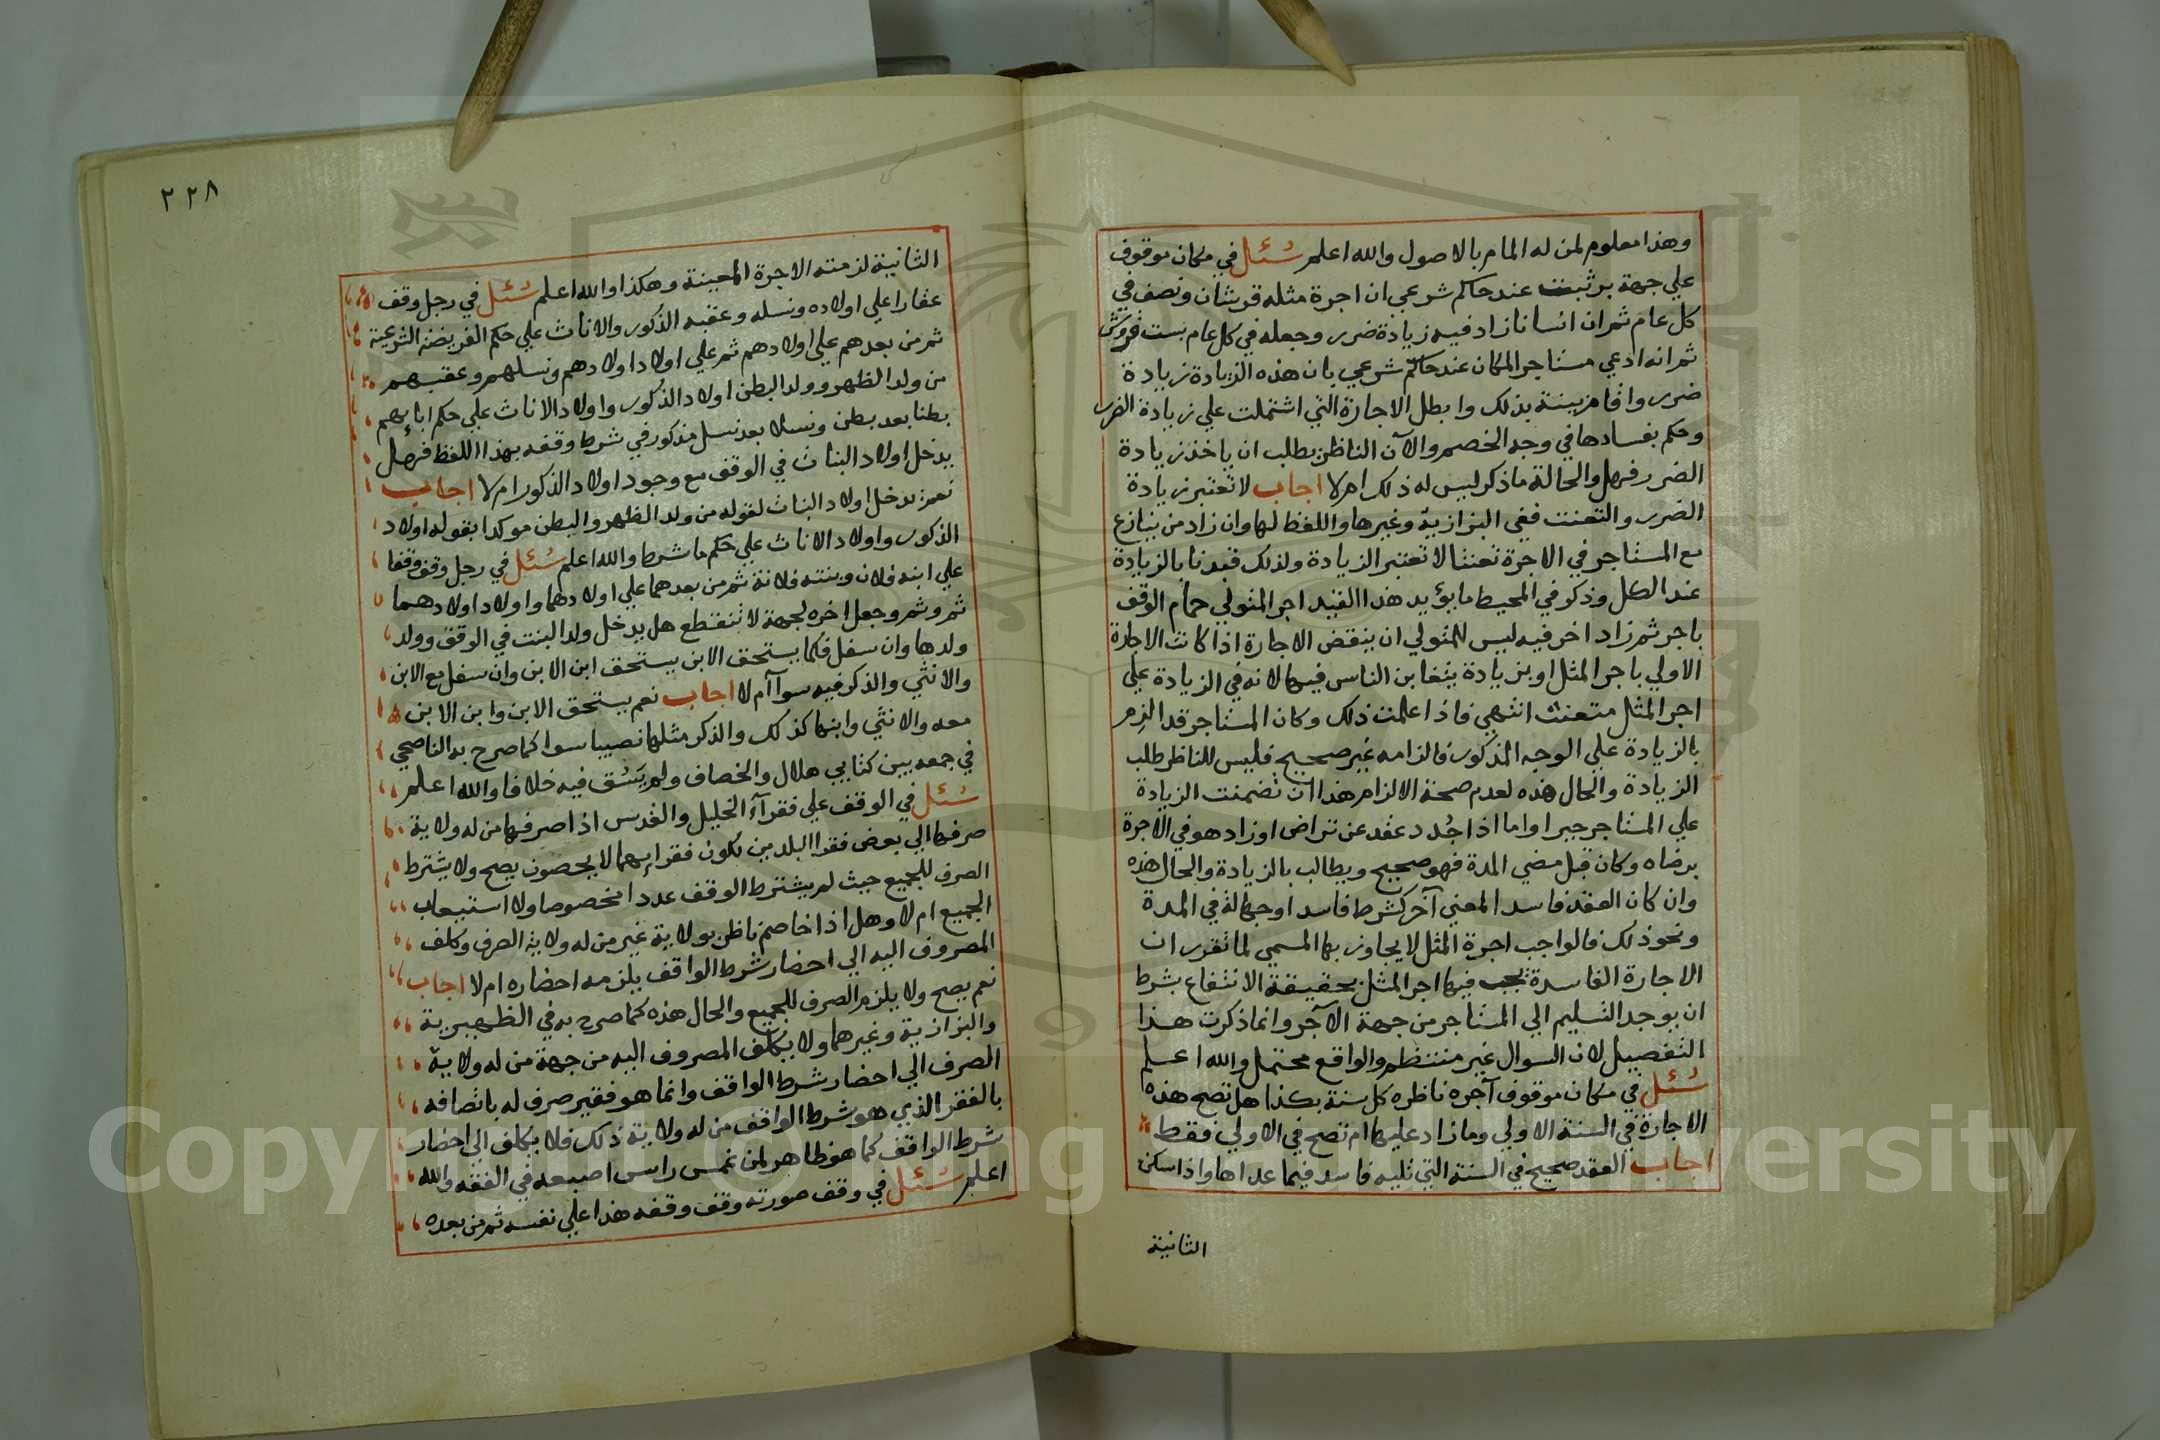 وهذا معلوم لمن له المام بالاصول والله اعلم سُئل في مكان موقوف
علي جهة بر ثبت عند حاكم شرعي ان اجرة مثله قرشان ونصف في
كل عام ثم ان انسانا زاد فيه زيادة ضرر وجعله في كل عام بست قروش
ثم انه ادعي مستاجر المكان عند حاكم شرعي بان هذه الزيادة زيادة
ضرر واقام بينة بذلك وابطل الاجارة التي اشتملت علي زيادة الضرر
وحكم بفسادها في وجه الخصم والآن الناظر يطلب ان ياخذ زيادة
الضرر فهل والحالة ما ذكر ليس له ذلك ام لا اجاب لا تعتبر زيادة
الضرر والتعنت ففي البزازية وغيرها واللفظ لها وان زاد من ينازع
مع المستاجر في الاجرة تعنتا لا تعتبر الزيادة ولذلك قيدنا بالزيادة
عند الكل وذكر في المحيط ما يؤيد هذا القيد اجر المتولي حمام الوقف
باجر ثم زاد اخر فيه ليس للمتولي ان ينقض الاجارة اذا كانت الاجارة
الاولي باجر المثل او بزيادة يتغابن الناس فيها لانه في الزيادة علي
اجر المثل متعنت انتهي فاذا علمت ذلك وكان المستاجر قد الزم
بالزيادة علي الوجه المذكور فالزامه غير صحيح فليس للناظر طلب
الزيادة والحال هذه لعدم صحة الالزام هذا ان تضمنت الزيادة
علي المستاجر جبرا واما اذا جُدد عقد عن تراض او زاد هو في الاجرة
برضاه وكان قبل مضي المدة فهو صحيح ويطالب بالزيادة والحال هذه
وان كان العقد فاسدا لمعني آخر كشرط فاسد او جهالة في المدة
ونحو ذلك فالواجب اجرة المثل لا يجاوز بها المسمي لما تقرر ان
الاجارة الفاسدة تجب فيها اجر المثل بحقيقة الانتفاع بشرط
ان يوجد التسليم الي المستاجر من جهة الآجر وانما ذكرت هذا
التفصيل لان السوال غير منتظم والواقع محتمل والله اعلم
سُئل في مكان موقوف آجره ناظره كل سنة بكذا هل تصح هذه
الاجارة في السنة الاولي وما زاد عليها ام تصح في الاولي فقط
اجاب العقد صحيح في السنة التي تليه فاسد فيما عداها واذا سكن
الثانية
٢٢٨
الثانية لزمته الاجرة المعينة وهكذا والله اعلم سُئل في رجل وقف
عقارا علي اولاده ونسله وعقبه الذكور والاناث علي حكم الفريضة الشرعية
ثم من بعدهم علي اولادهم ثم علي اولاد اولادهم ونسلهم وعقبهم
من ولد الظهر وولد البطن اولاد الذكور واولاد الاناث علي حكم ابائهم
بطنا بعد بطن ونسلا بعد نسل مذكور في شرط وقفه بهذا اللفظ فهل
يدخل اولاد البنات في الوقف مع وجود اولاد الذكور ام لا اجاب
نعم يدخل اولاد البنات لقوله من ولد الظهر والبطن موكدا بقوله اولاد
الذكور واولاد الاناث علي حكم ما شرط والله اعلم سُئل في رجل وقف وقفا
علي ابنه فلان وبنته فلانة ثم من بعدهما علي اولادهما واولاد اولادهما
ثم وثم وجعل اخره لجهة لا تنقطع هل يدخل ولد البنت في الوقف وولد
ولدها وان سفل فكما يستحق الابن يستحق ابن الابن وان سفل مع الابن
والانثي والذكر فيه سوآ ام لا اجاب نعم يستحق الابن وابن الابن
معه والانثي وابنها كذلك والذكر مثلها نصيبا سوا كما صرح به الناصحي
في جمعه بين كتابي هلال والخصاف ولم يَسُق فيه خلافا والله اعلم
سُئل في الوقف علي فقرآء الخليل والقدس اذا صرفها من له ولاية
صرفها الي بعض فقرا البلدين لكون فقرائهما لا يحصون يصح ولا يشترط
الصرف للجميع حيث لم يشترط الوقف عددا مخصوصا ولا استيعاب
الجميع ام لا وهل اذا خاصم ناظر بولاية غير من له ولاية الصرف وكلف
المصروف اليه الي احضار شرط الواقف يلزمه احضاره ام لا اجاب
نعم يصح ولا يلزم الصرف للجميع والحال هذه كما صرح به في الظهيرية
والبزازية وغيرهما ولا يكلف المصروف اليه من جهة من له ولاية
الصرف الي احضار شرط الواقف وانما هو فقير صرف له باتصافه
بالفقر الذي هو شرط الواقف من له ولاية ذلك فلا يكلف الي احضار
شرط الواقف كما هو ظاهر لمن غمس راس اصبعه في الفقه والله
اعلم سُئل في وقف صورته وقف وقفه هذا علي نفسه ثم من بعده